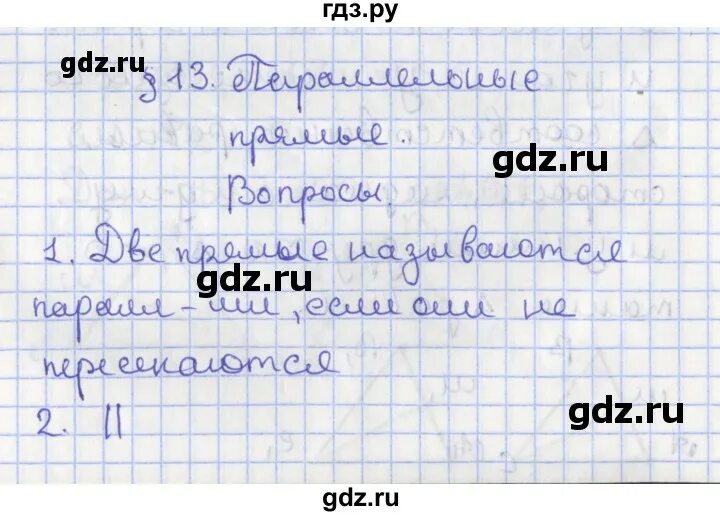 гдз.ру
gdz.ru
§ 13. Параллельные
прямые.
gdz.ru
Вопросы.
1. Две прямые называются
gdz.ru
паралл-ми, если они не
пересекаются
gdz.ru
2. ||
gdz.ru